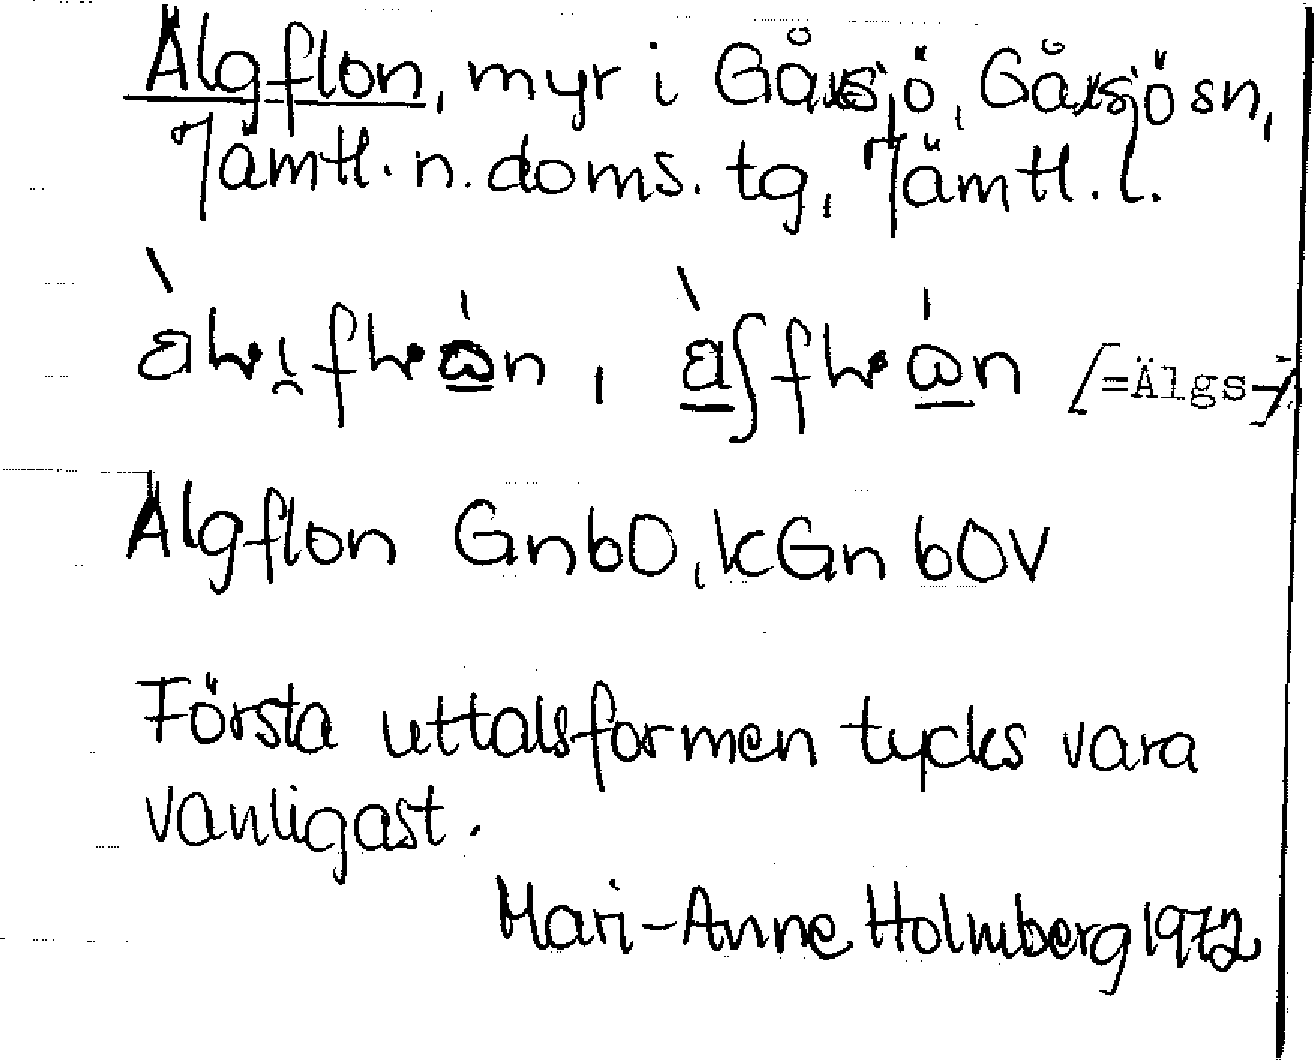 Älgflon, myr i Gåxsjö, Gåxsjö sn,
Jämtl. n. doms. tg, Jämtl. l.
[=Älgs-]
Älgflon GnbO, kGn bOV
Första uttalsformen tycks vara
vanligast.
Mari-Anne Holmberg 1972